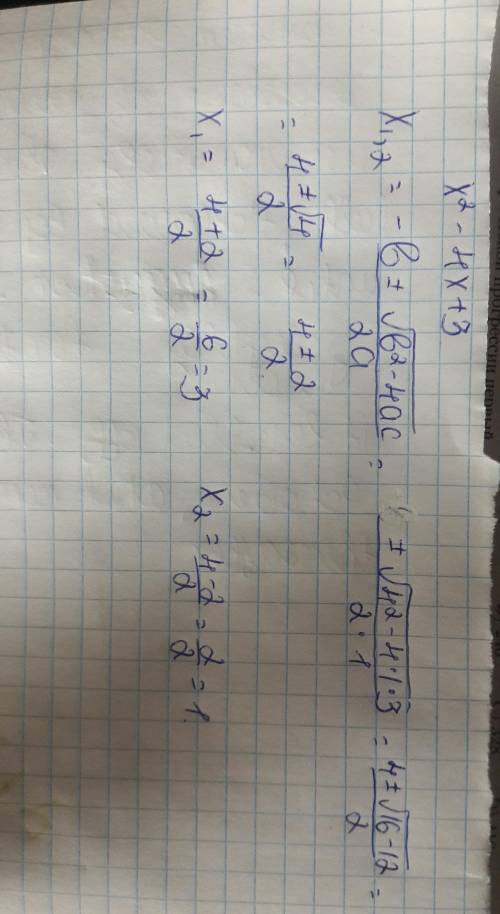 x² - 4x + 3
x₁,₂ = -b ± √b² - 4ac / 2a = ± √4² - 4·1·3 / 2·1 = 4 ± √16 - 12 / 2 =
= 4 ± √4 / 2 = 4 ± 2 / 2
x₁ = 4 + 2 / 2 = 6 / 2 = 3 x₂ = 4 - 2 / 2 = 2 / 2 = 1